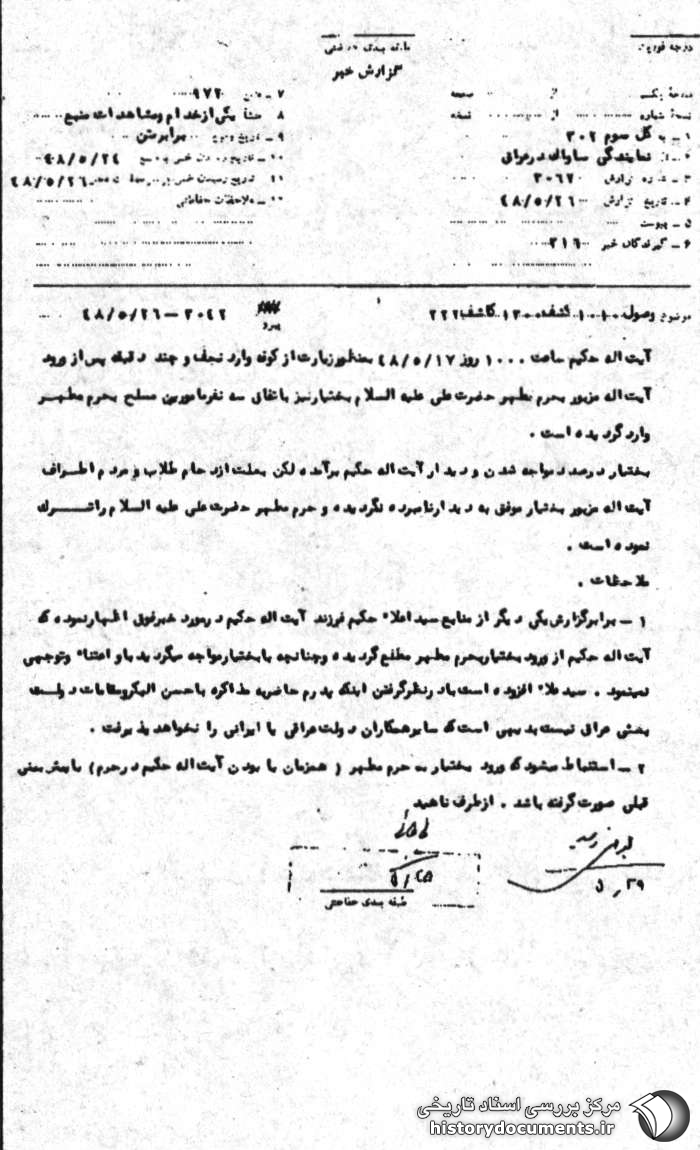 درجه فوریت
طبقه بندی حفاظتی
گزارش خبر
صفحه یکم از صفحه
نسخه شماره از نسخه
۱ ـ به کل سوم ۳۰۲
۲ ـ از نمایندگی ساواک در عراق
۳ ـ شماره گزارش ۳۰۶۲
۴ ـ تاریخ گزارش ۴۸/۵/۲۶
۵ ـ پیوست
۶ ـ گیرندگان خبر ۳۱۶
۷ ـ منبع ۹۷۲
۸ منشأ یکی از خدام و مشاهدات منبع
۹ ـ تاریخ وقوع برابر متن
۱۰ ـ تاریخ رسیدن خبر به منبع ۴۸/۵/۲۴
۱۱ تاریخ رسیدن خبر ۴۸/۵/۲۶
۱۲ ـ ملاحظات حفاظتی
موضوع وصول ۱۰۱۰ کشف ۱۳۰۰ کاشف ۲۲۲
پیرو ۳۰۴۲ – ۴۸/۵/۲۶
آیت اله حکیم ساعت ۱۰۰۰ روز ۴۸/۵/۱۷ بمنظور زیارت از کوفه وارد نجف و چند دقیقه پس از ورود
آیت اله مزبور بحرم مطهر حضرت علی علیه السلام بختیار نیز باتفاق سه نفر مامورین مسلح بحرم مطهر
وارد گردیده است .
بختیار درصدد مواجه شدن و دیدار آیت اله حکیم برآمده لکن بعلت ازدحام طلاب و مردم اطراف
آیت اله مزبور بختیار موفق به دیدار نامبرده نگردیده و حرم مطهر حضرت علی علیه السلام را ترک
نموده است .
ملاحظات .
۱ – برابر گزارش یکی دیگر از منابع سید علاء حکیم فرزند آیت اله حکیم در مورد خبر فوق اظهار نموده که
آیت اله حکیم از ورود بختیار بحرم مطهر مطلع گردیده و چنانچه با بختیار مواجه میگردید باو اعتناء و توجهی
نمینمود . سید علاء افزوده است با در نظر گرفتن اینکه پدرم حاضر به مذاکره با حسن البکر و مقامات دولت
بعثی عراق نیست بدیهی است که سایر همکاران دولت عراقی یا ایرانی را نخواهد پذیرفت .
۲ – استنباط میشود که ورود بختیار به حرم مطهر ( همزمان با بودن آیت اله حکیم در حرم ) با پیش بینی
قبلی صورت گرفته باشد . از طرف ناهید
۵/۲۹
طبقه بندی حفاظتی
مرکز بررسی اسناد تاریخی
historydocuments.ir